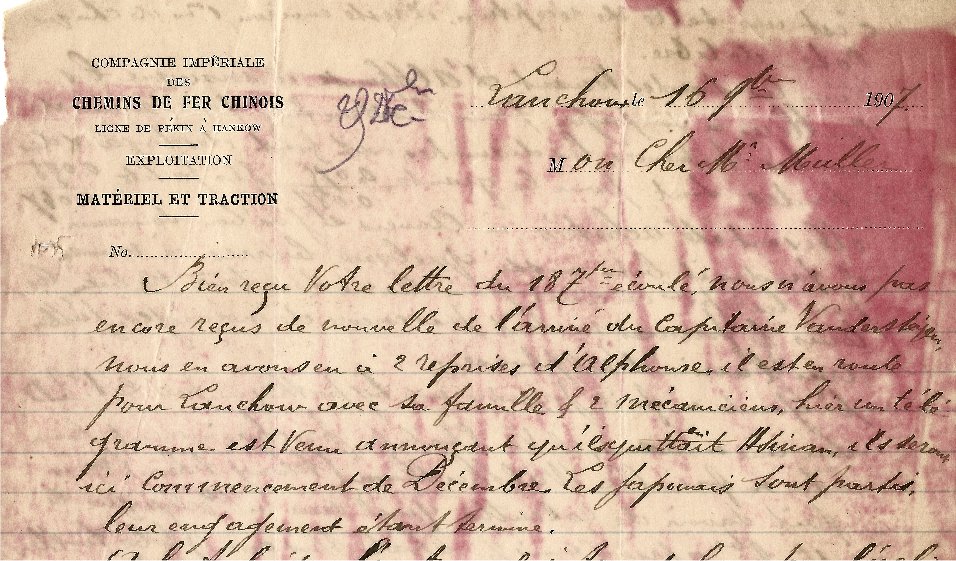 COMPAGNIE IMPÉRIALE
DES
CHEMINS DE FER CHINOIS
LIGNE DE PÉKIN À HANKOW
EXPLOITATION
MATÉRIEL ET TRACTION
No.
Lanchow le 16 1907
Mon Cher Mr.
Bien reçu Votre lettre du 18 7bre écoulé, nous n'avons pas
encore reçus de nouvelle de l'arrivé du Capitaine
nous en avons eu à 2 reprises d'Alphonse, il est en route
pour Lanchow avec sa famille & 2 mécaniciens, hier un télé
gramme est Venu annonçant qu'ils quittait ils seront
ici Commencement de Décembre. Les Japonais sont partis,
leur engagement étant terminé.